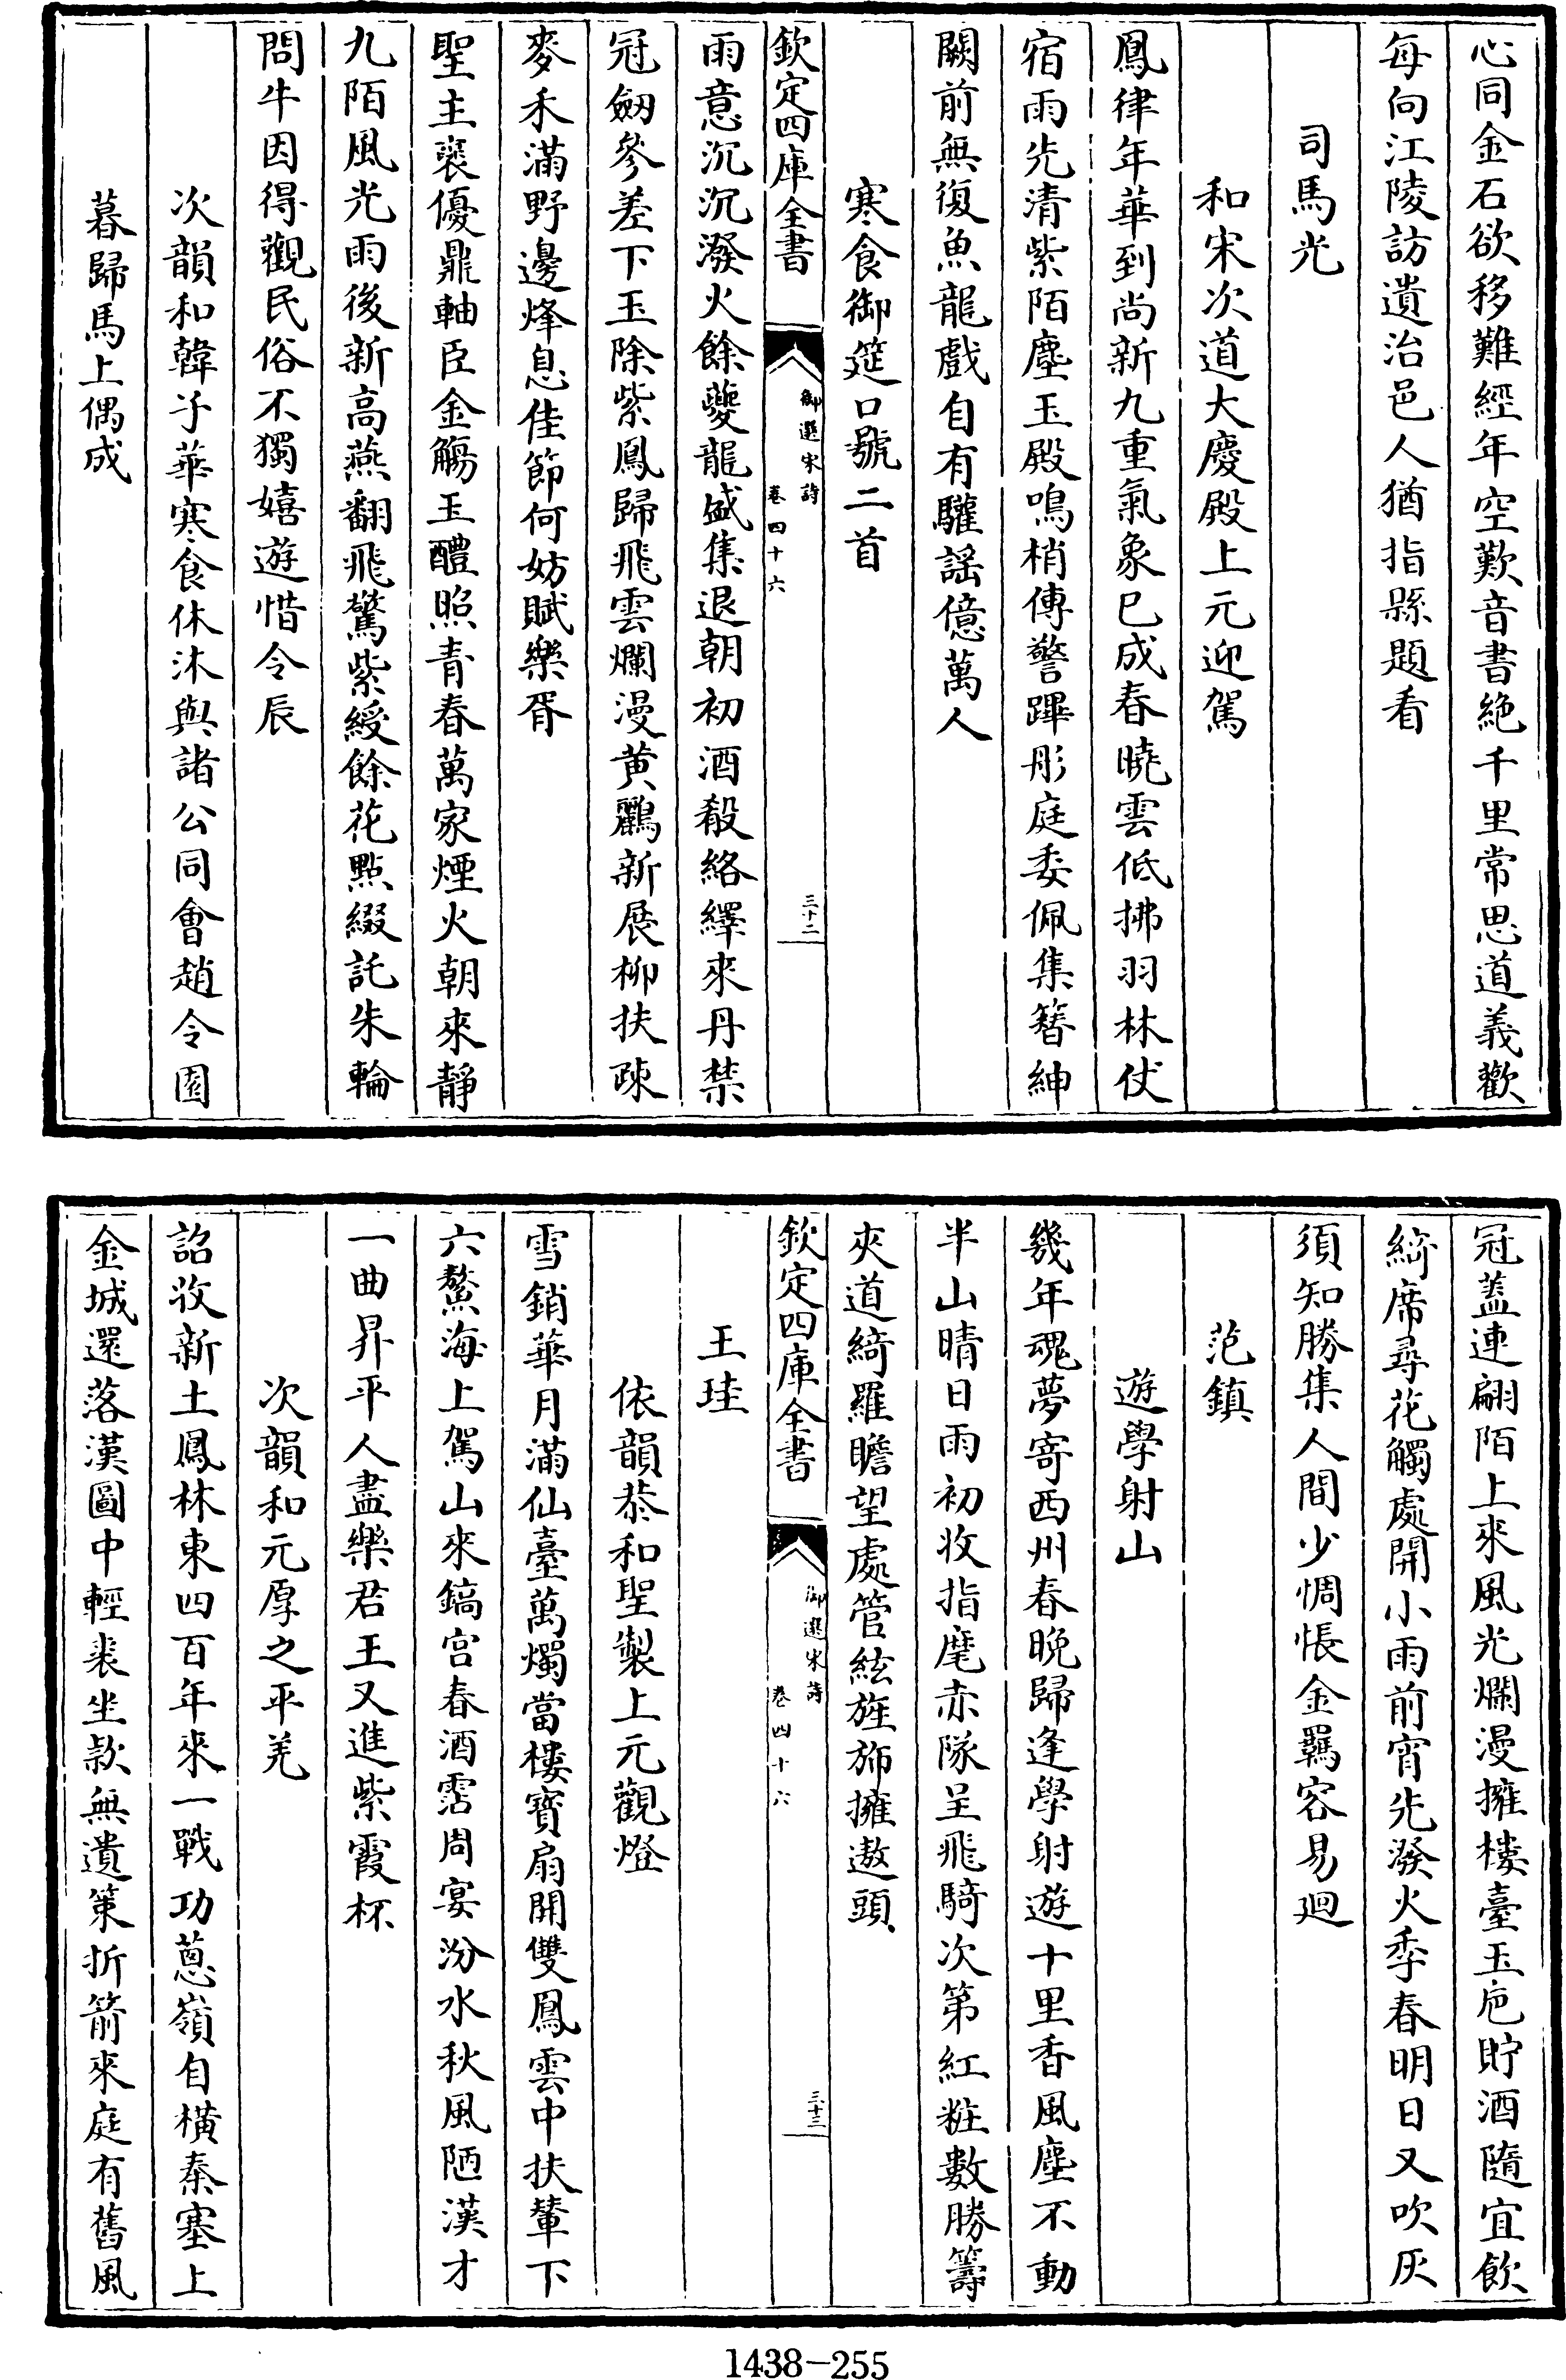 心同金石欲移難經年空歎音書絶千里常思道義歡
每向江陵訪遺治邑人猶指縣題看
司馬光
和宋次道大慶殿上元迎駕
鳳律年華到尚新九重氣象已成春曉雲低拂羽林仗
宿雨先清紫陌塵玉殿鳴梢傳警蹕彤庭委佩集簪紳
闕前無復魚龍戲自有驩謡億萬人
寒食御筵口號二首
欽定四庫全書
御選宋詩
卷四十六
三十二
雨意沉沉潑火餘夔龍盛集退朝初酒殽絡繹來丹禁
冠劔參差下玉除紫鳳歸飛雲爛漫黄鸝新展柳扶疎
麥禾滿野邊烽息佳節何妨賦樂胥
聖主褒優鼎軸臣金觴玉醴照青春萬家煙火朝來靜
九陌風光雨後新高燕翻飛驚紫綬餘花點綴託朱輪
問牛因得觀民俗不獨嬉遊惜令辰
次韻和韓子華寒食休沐與諸公同會趙令園
暮歸馬上偶成
冠蓋連翩陌上來風光爛漫擁樓臺玉巵貯酒隨宜飲
綺席尋花觸處開小雨前宵先潑火季春明日又吹灰
須知勝集人間少惆悵金羈容易迴
范鎮
遊學射山
幾年魂夢寄西州春晚歸逢學射遊十里香風塵不動
半山晴日雨初收指麾赤隊呈飛騎次第紅粧數勝籌
夾道綺羅瞻望處管絃旌旆擁遨頭
欽定四庫全書
御選宋詩
卷四十六
三十三
王珪
依韻恭和聖製上元觀燈
雪銷華月滿仙臺萬燭當樓寶扇開雙鳳雲中扶輦下
六鰲海上駕山來鎬宫春酒霑周宴汾水秋風陋漢才
一曲昇平人盡樂君王又進紫霞杯
次韻和元厚之平羌
詔收新土鳳林東四百年來一戰功蔥嶺自横秦塞上
金城還落漢圖中輕裘坐款無遺策折箭來庭有舊風
1438-255